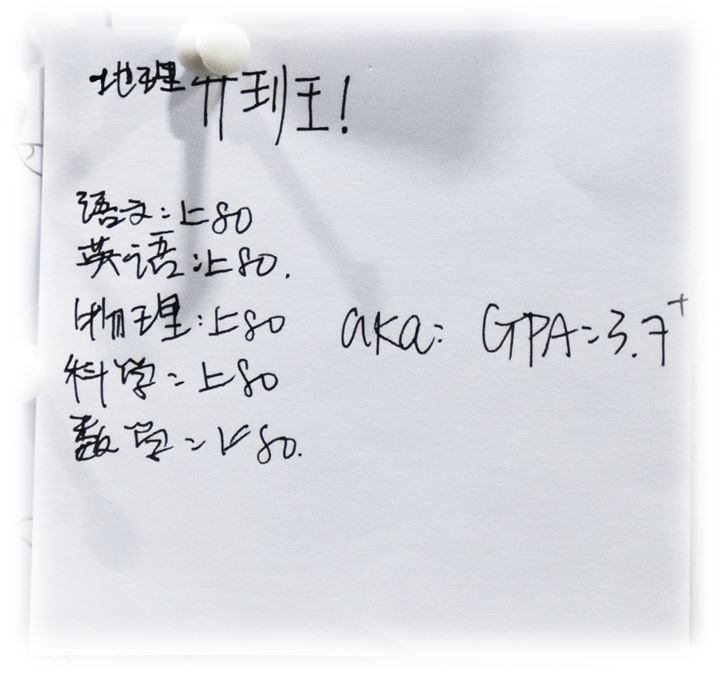 地理升班王!
语文:上80
英语:上80.
物理:上80 aka: GPA=3.7+
科学:上80
数学:上80.